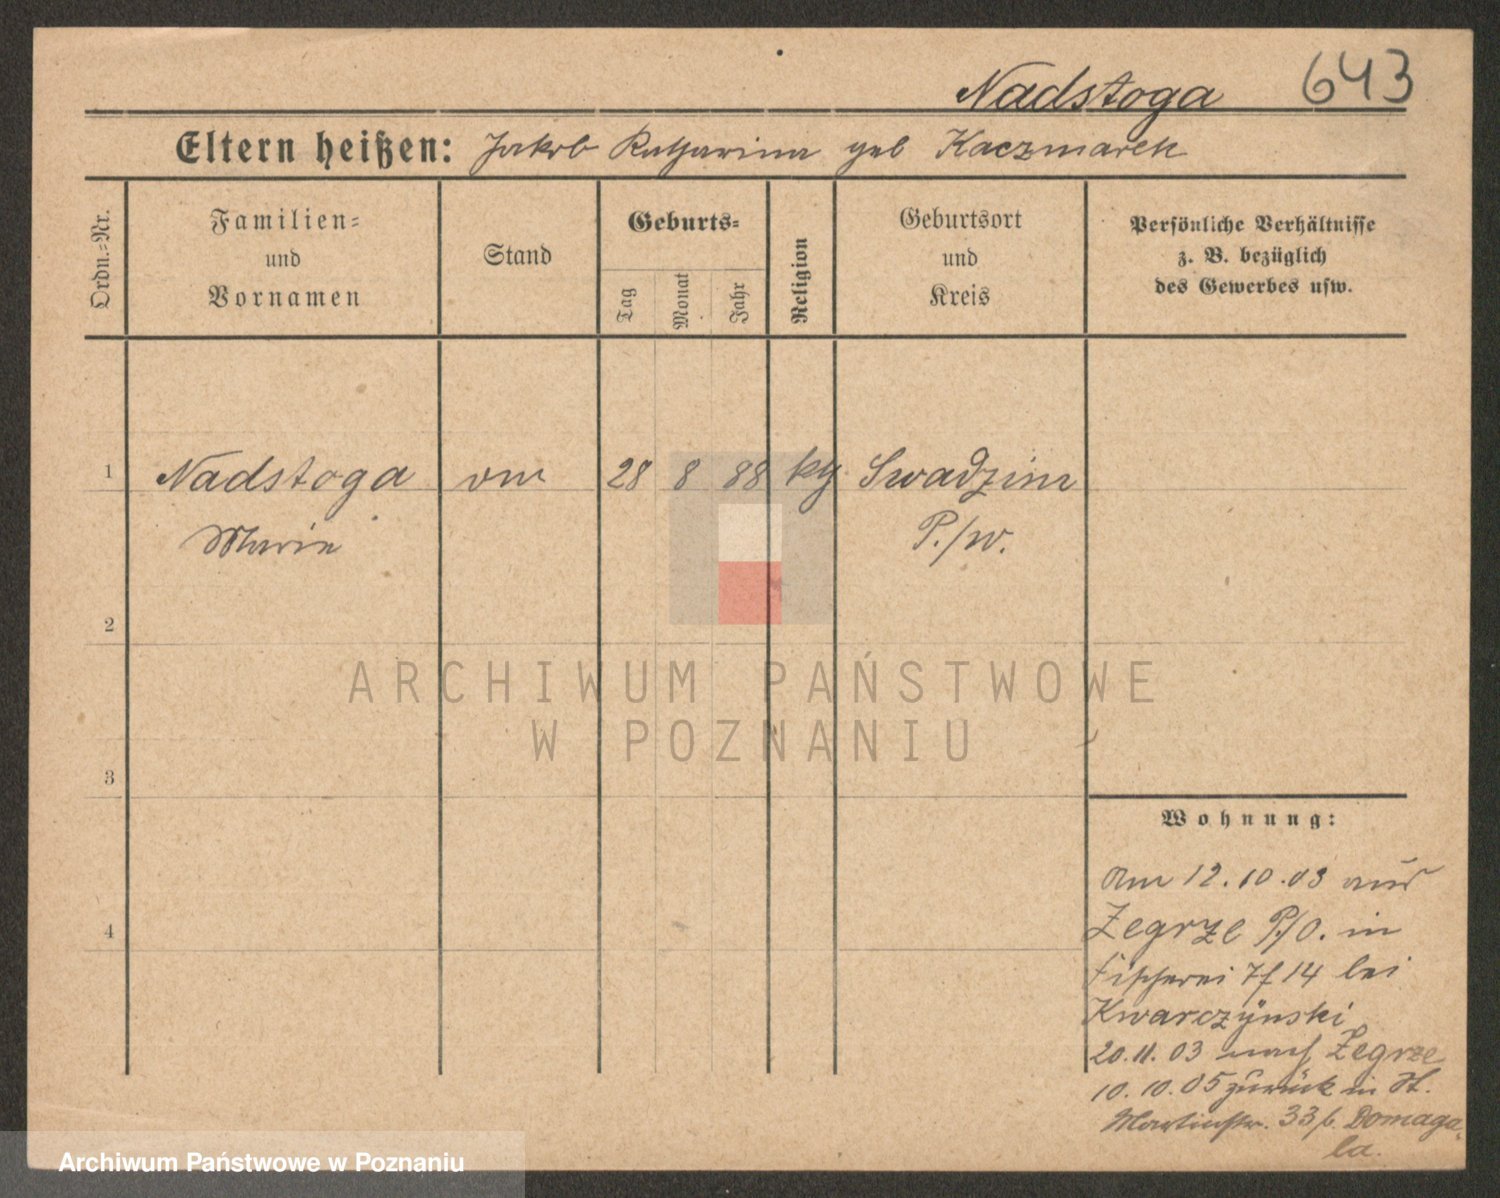 Nadstoga 643
Eltern heißen: Jakob Katharina geb Kaczmarek
Ordn.=Nr.
Familien=
und
Vornamen
Stand
Geburts=
Tag
Monat
Jahr
Religion
Geburtsort
und
Kreis
Persönliche Verhältnisse
z. B. bezüglich
des Gewerbes usw.
1 Nadstoga 28 8 88 kg Swadzim
Marie P./w.
2
3
4
Wohnung:
Am 12.10.03 aus
Zegrze P/O. in
Fischerei 7 f 14 bei
Kwarczynski
20.11.03 nach Zegrze
10.10.05 zurück in St.
Martinstr. 33 b. Domaga
la.
ARCHIWUM PAŃSTWOWE
W POZNANIU
Archiwum Państwowe w Poznaniu